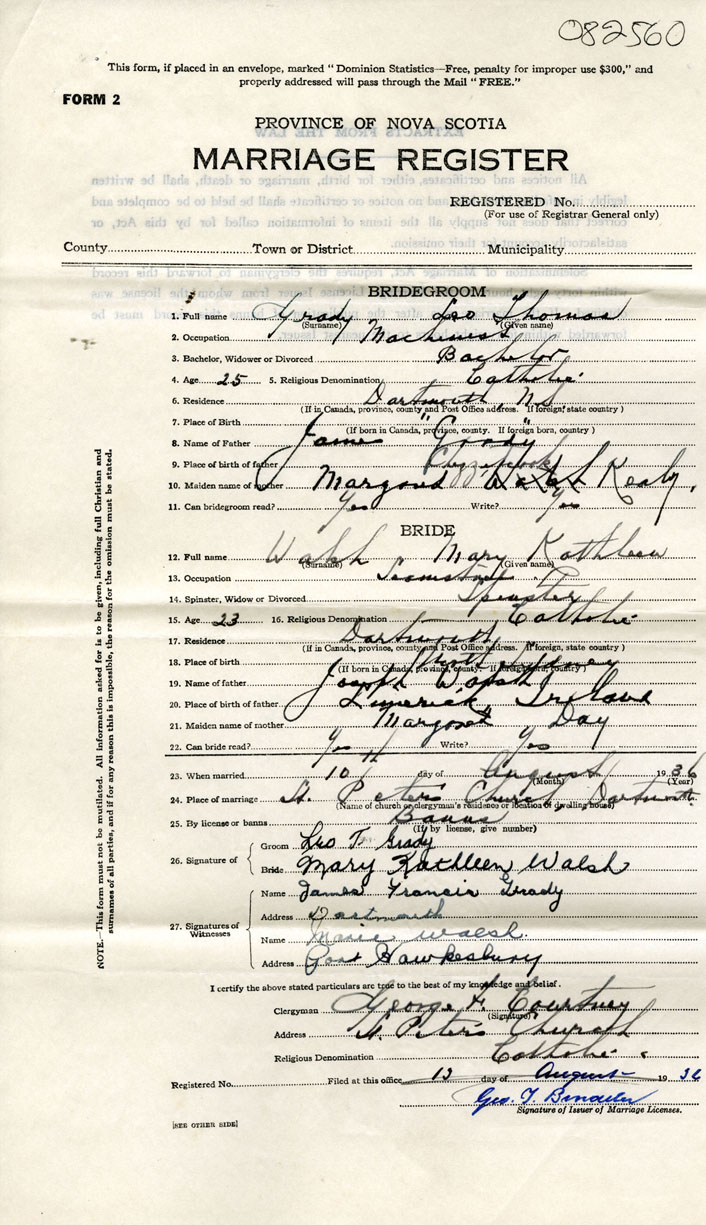 082560
This form, if placed in an envelope, marked "Dominion Statistics—Free, penalty for improper use $300," and
properly addressed will pass through the Mail "FREE."
FORM 2
PROVINCE OF NOVA SCOTIA
MARRIAGE REGISTER
REGISTERED No.
(For use of Registrar General only)
County Town or District Municipality
BRIDEGROOM
1. Full name Grady Leo Thomas
(Surname) (Given name)
2. Occupation Machinist
3. Bachelor, Widower or Divorced Bachelor
4. Age 25 5. Religious Denomination Catholic
6. Residence Dartmouth, N.S.
(If in Canada, province, county and Post Office address. If foreign, state country)
7. Place of Birth " "
(If born in Canada, province, county. If foreign born, country)
8. Name of Father James Grady
9. Place of birth of father
10. Maiden name of mother Margaret Kealy
11. Can bridegroom read? Yes Write? Yes
BRIDE
12. Full name Walsh Mary Kathleen
(Surname) (Given name)
13. Occupation
14. Spinster, Widow or Divorced Spinster
15. Age 23 16. Religious Denomination Catholic
17. Residence Dartmouth
(If in Canada, province, county and Post Office address. If foreign, state country)
18. Place of birth North Sydney
(If born in Canada, province, county. If foreign born, country)
19. Name of father Joseph Walsh
20. Place of birth of father Limerick, Ireland
21. Maiden name of mother Margaret Day
22. Can bride read? Yes Write? Yes
23. When married 10th day of August 1936
(Month) (Year)
24. Place of marriage St. Peter's Church Dartmouth
(Name of church or clergyman's residence or location of dwelling house)
25. By license or banns Banns
(If by license, give number)
26. Signature of
Groom Leo T. Grady
Bride Mary Kathleen Walsh
27. Signatures of Witnesses
Name James Francis Grady
Address Dartmouth
Name Marie Walsh
Address Port Hawkesbury
I certify the above stated particulars are true to the best of my knowledge and belief.
Clergyman George F. Courtney
(Signature)
Address St. Peter's Church
Religious Denomination Catholic
Registered No. Filed at this office 13 day of August 1936
Geo. T.
Signature of Issuer of Marriage Licenses.
[SEE OTHER SIDE]
NOTE.—This form must not be mutilated. All information asked for is to be given, including full Christian and
surnames of all parties, and if for any reason this is impossible, the reason for the omission must be stated.